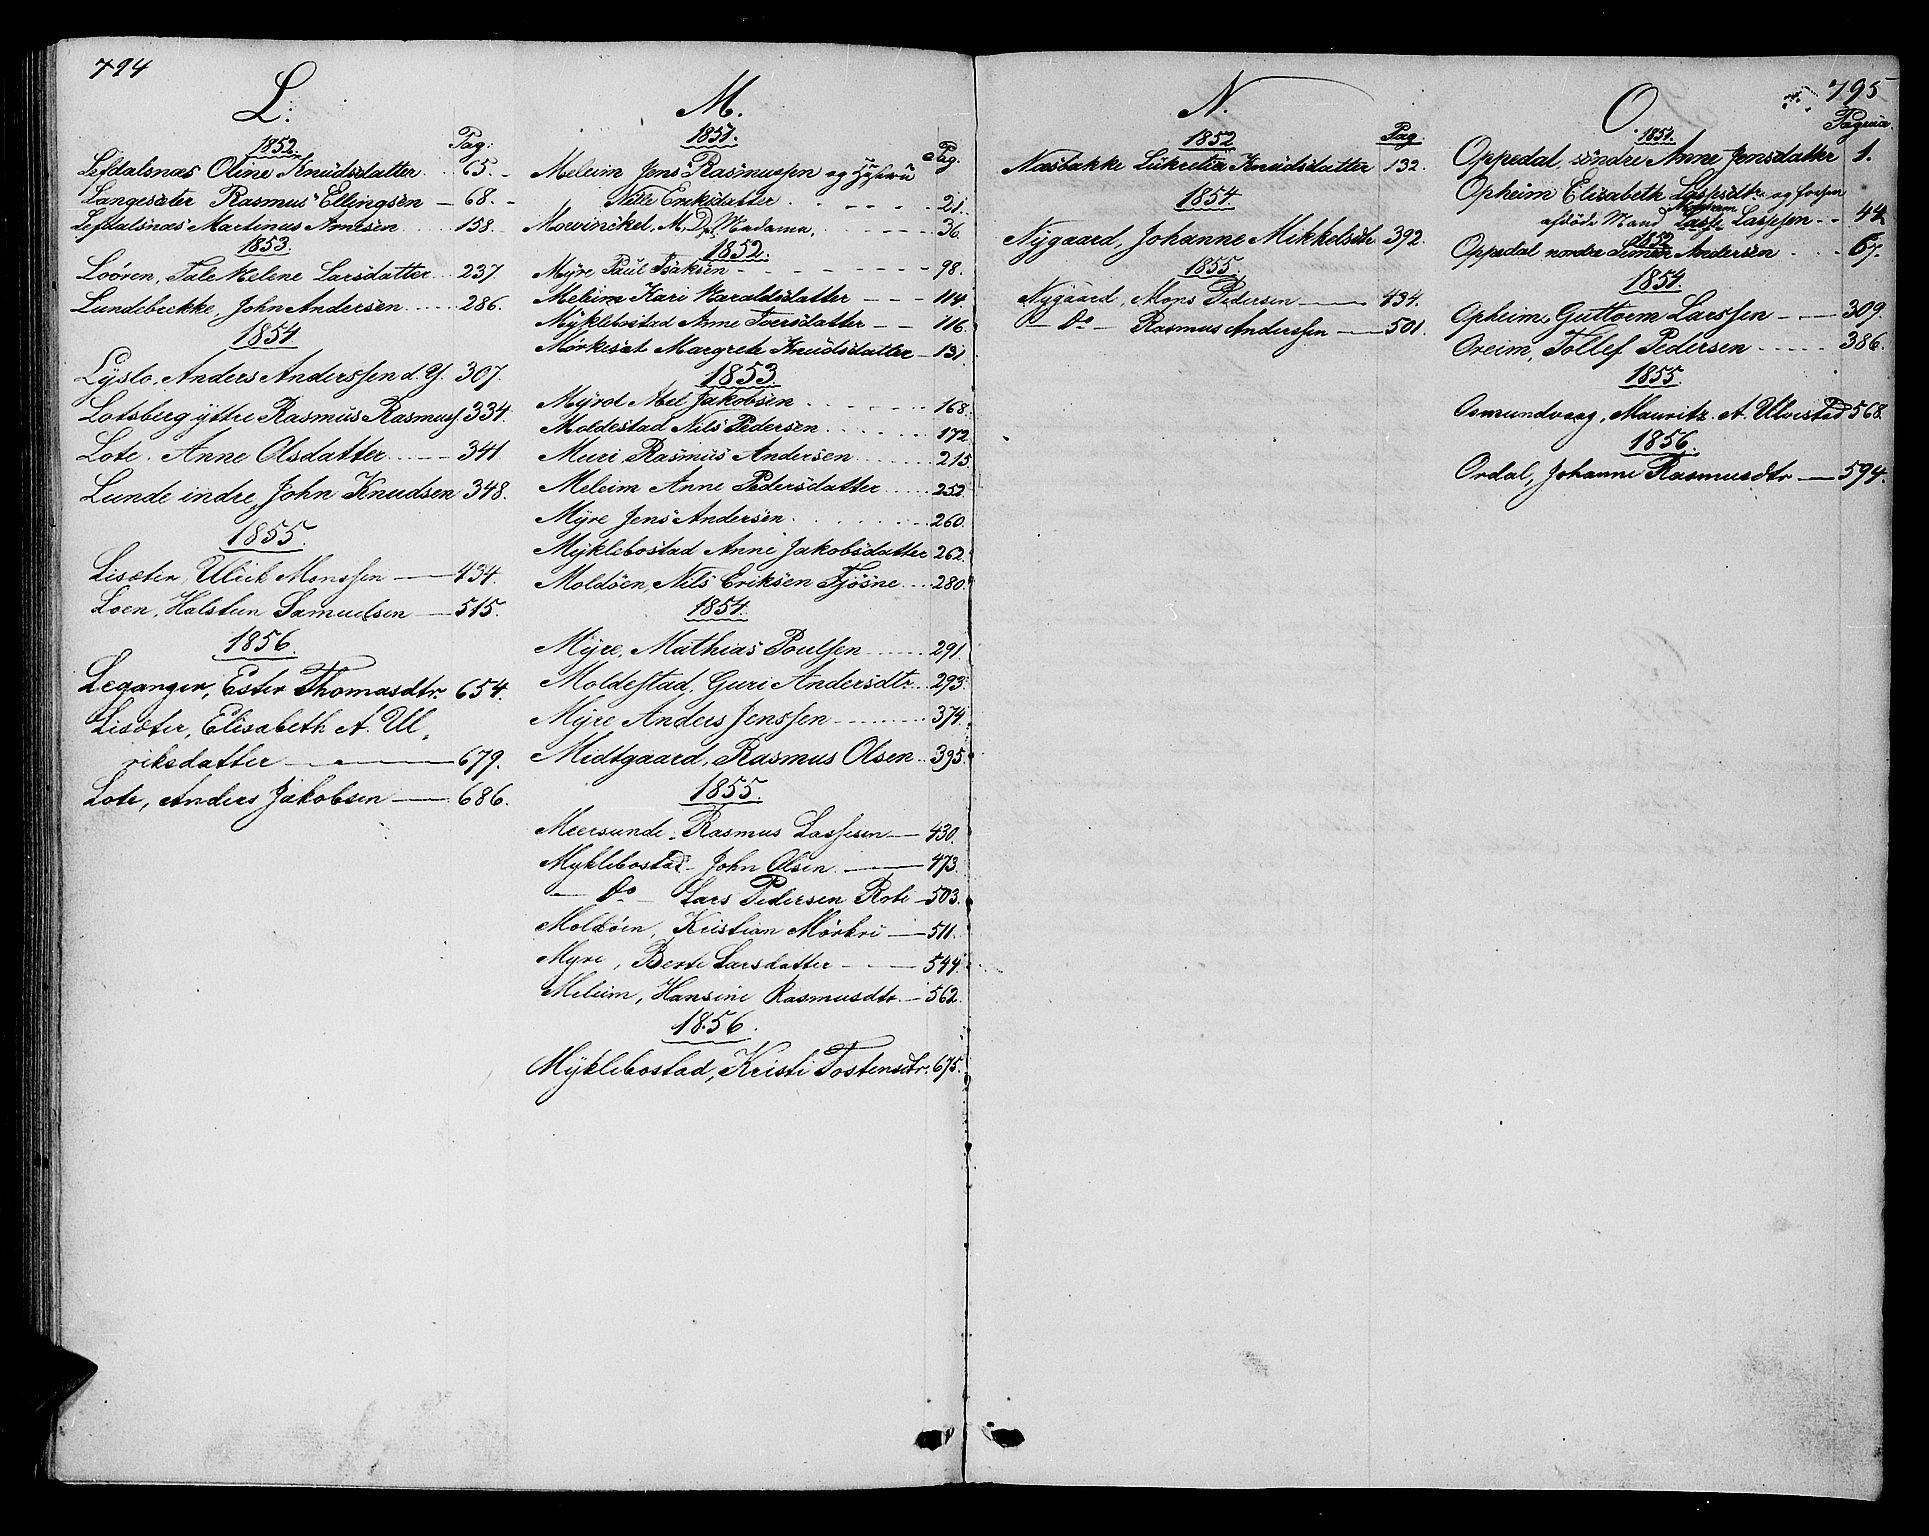 794
L:
1852.
Pag:
Lefdalsnæs Oline Knudsdatter. 65.
Langesæter Rasmus Ellingsen — 68.
Lefdalsnæs Martinus Arnesen 158.
1853.
Loøren, Tale Helene Larsdatter 237.
Lundebrekke, John Andersen 286.
1854
Lyslo, Anders Anderssen d. Y. 307.
Lotsberg yttre Rasmus Rasmuss. 334.
Lote, Anne Olsdatter 341
Lunde indre, John Knudsen 348.
1855.
Lisæter, Ulrik Monssen — 434.
Loen, Halsten Samuelsen — 515.
1856.
Leganger, Ester Thomasdtr. 654.
Lisæter, Elisabeth A. Ul-
riksdatter — 679.
Lote, Anders Jakobsen — 686.
M.
1851.
Pag.
Meleim Jens Rasmussen og Hustru
Nille Eriksdatter 21.
Mowinckel, M. D. Madame, 36.
1852.
Myre Paul Isaksen 98.
Meleim Kari Haraldsdatter — 114
Myklebostad Anne Toersdatter — 116.
Mørkesæt Margrete Knudsdatter — 131
1853.
Myrod Abel Jakobsen 168.
Moldestad Nils Pedersen 172.
Muri Rasmus Andersen 215.
Meleim Anne Pedersdatter 252.
Myre Jens Andersen 260.
Myklebostad Anne Jakobsdatter 262.
Moldøen, Nils Eriksen Fjøsne 280.
1854.
Myre, Mathias Poulsen 291.
Moldestad, Guri Andersdtr. 293.
Myre Anders Jenssen 374.
Midtgaard, Rasmus Olsen 395.
1855.
Meersunde, Rasmus Lassesen — 430.
Myklebostad John Olsen — 473.
— Do — Lars Pedersen Roti — 503.
Moldøen, Kristian Mørkri — 511.
Myre, Berte Larsdatter — 544.
Meleim, Hansine Rasmusdtr. — 562.
1856.
Myklebostad, Kristi Tostensdtr. 675.
N.
1852
Pag
Næsbakke Lukretia Knudsdatter 132.
1854.
Nygaard, Johanne Mikkelsdtr 392.
1855.
Nygaard, Mons Pedersen — 434.
— Do — Rasmus Anderssen — 501.
795
O.
1851.
Pagina.
Oppedal, søndre Anne Jensdatter 1.
Opheim Elisabeth Lassesdtr. og forhen
afdøde Mand Lasse Lassen 44
1852
Oppedal nordre Simon Andersen 67.
1854.
Opheim, Guttorm Larssen — 309.
Oreim, Tollef Pedersen 386.
1855.
Osmundvaag, Mauritz A. Ulvestad 568.
1856.
Ordal, Johanne Rasmusdtr — 594.